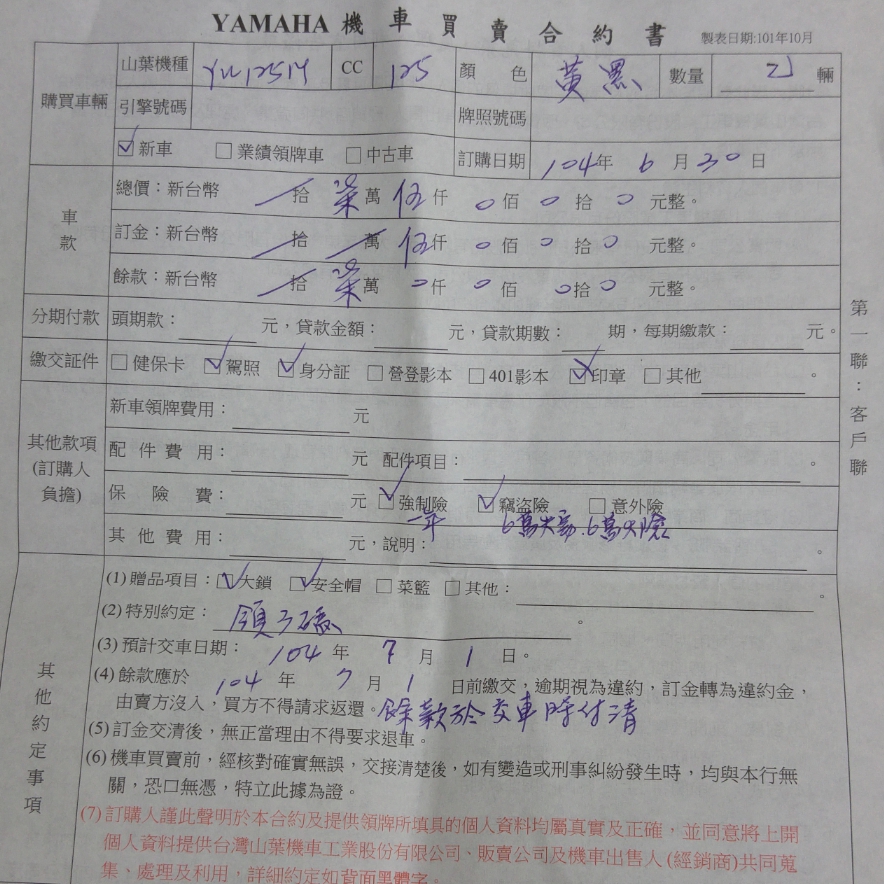 YAMAHA 機車買賣合約書 製表日期:101年10月
購買車輛
山葉機種 CC 125 顏色 黃黑 數量 輛
引擎號碼 牌照號碼
☑新車 □業績領牌車 □中古車 訂購日期 104年 6月30日
車款
總價：新台幣 拾 柒萬 伍仟 0佰 0拾 0元整。
訂金：新台幣 拾 萬 伍仟 0佰 0拾 0元整。
餘款：新台幣 拾 柒萬 0仟 0佰 0拾 0元整。
分期付款 頭期款： 元，貸款金額： 元，貸款期數： 期，每期繳款： 元。
繳交証件 □健保卡 ☑駕照 ☑身分証 □營登影本 □401影本 ☑印章 □其他 。
其他款項(訂購人負擔)
新車領牌費用： 元
配件費用： 元 配件項目： 。
保險費： 元 ☑強制險 ☑竊盜險 □意外險
一年
其他費用： 元，說明： 。
其他約定事項
(1)贈品項目：☑大鎖 ☑安全帽 □菜籃 □其他： 。
(2)特別約定： 。
(3)預計交車日期：104年 7月 1日。
(4)餘款應於 104年 7月 1日前繳交，逾期視為違約，訂金轉為違約金，
由賣方沒入，買方不得請求返還。餘款於交車時付清
(5)訂金交清後，無正當理由不得要求退車。
(6)機車買賣前，經核對確實無誤，交接清楚後，如有變造或刑事糾紛發生時，均與本行無
關，恐口無憑，特立此據為證。
(7)訂購人謹此聲明於本合約及提供領牌所填具的個人資料均屬真實及正確，並同意將上開
個人資料提供台灣山葉機車工業股份有限公司、販賣公司及機車出售人(經銷商)共同蒐
集、處理及利用，詳細約定如背面黑體字。
第一聯：客戶聯